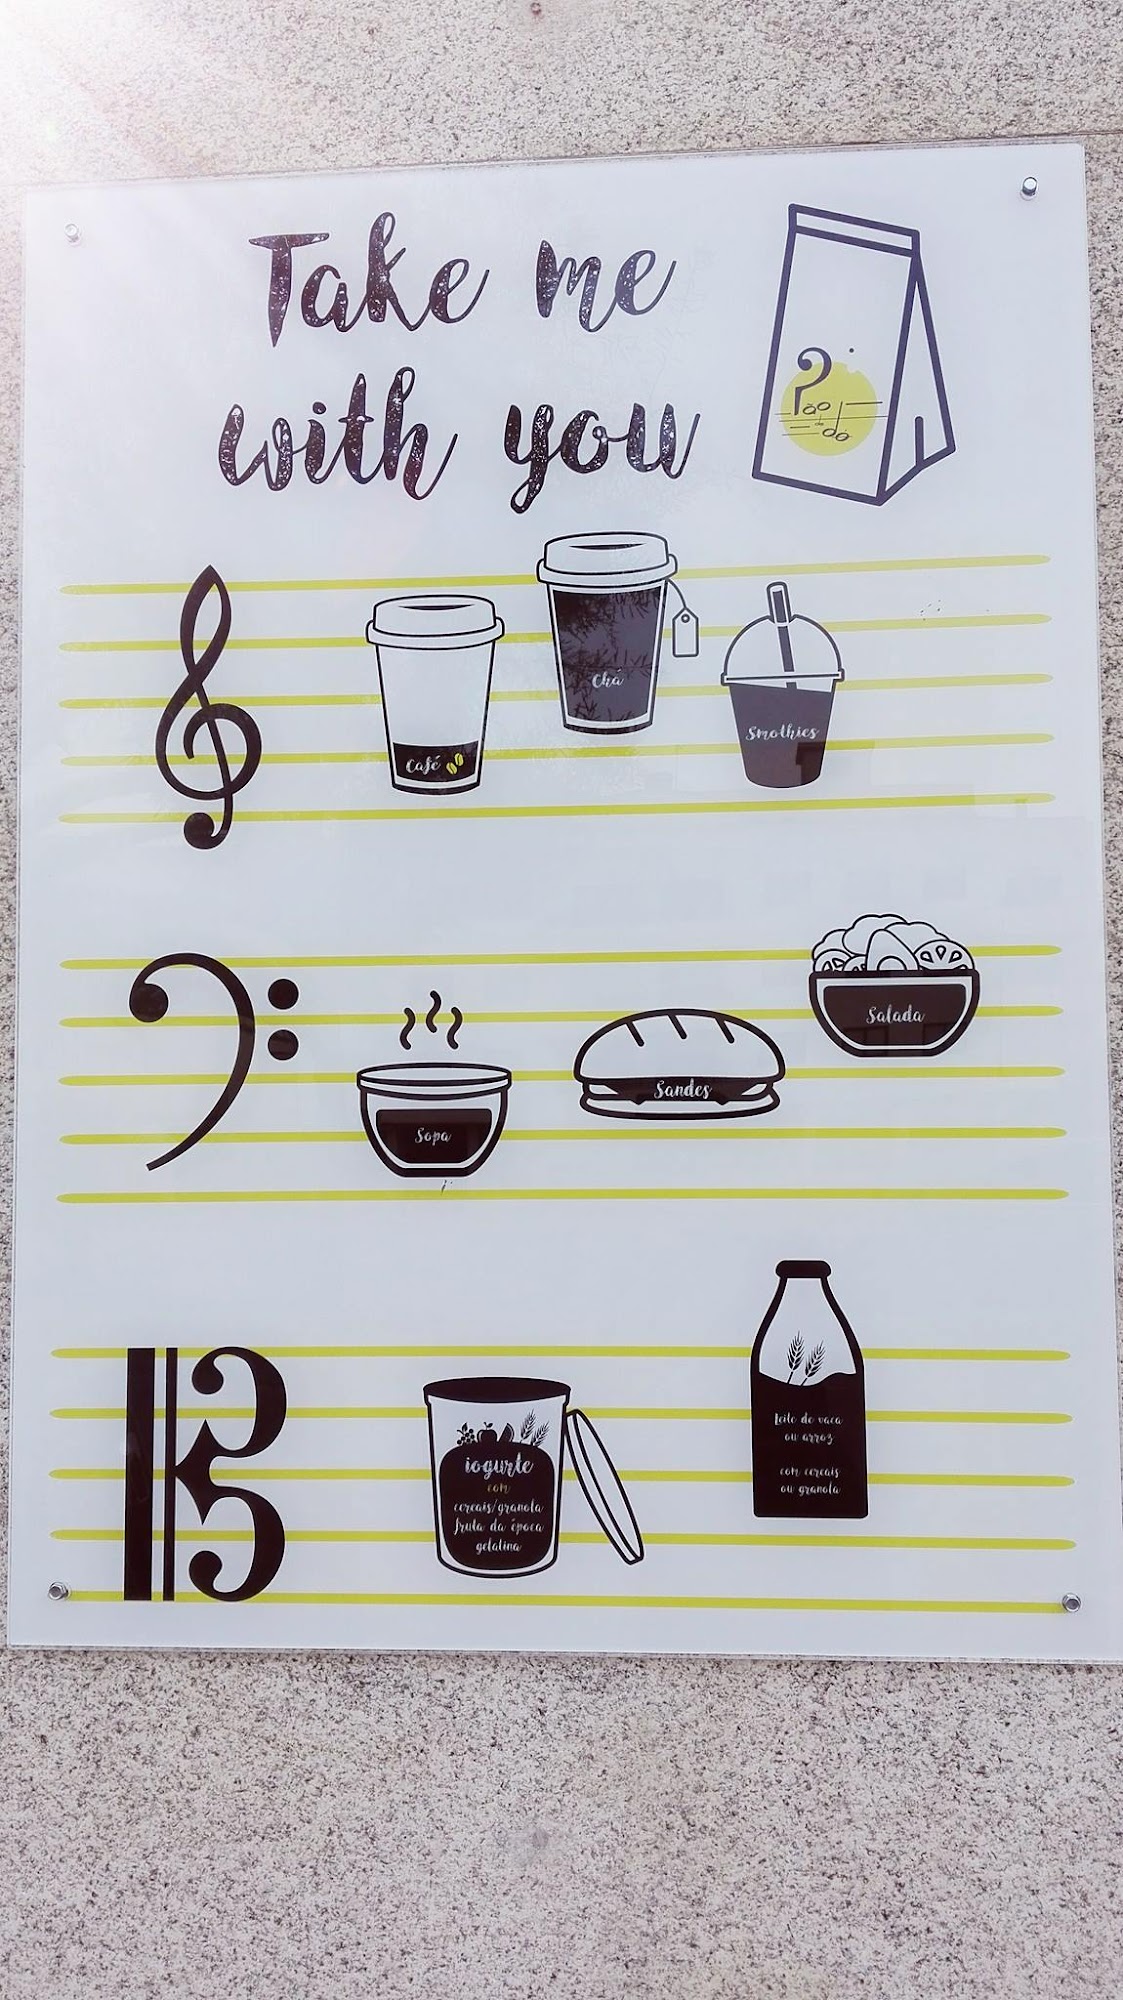 Take me
with you
Pão
de
dó
Café
Chá
Smothies
Sopa
Sandes
Salada
iogurte
com
cereais/granola
fruta da época
gelatina
Leite de vaca
ou arroz
com cereais
ou granola